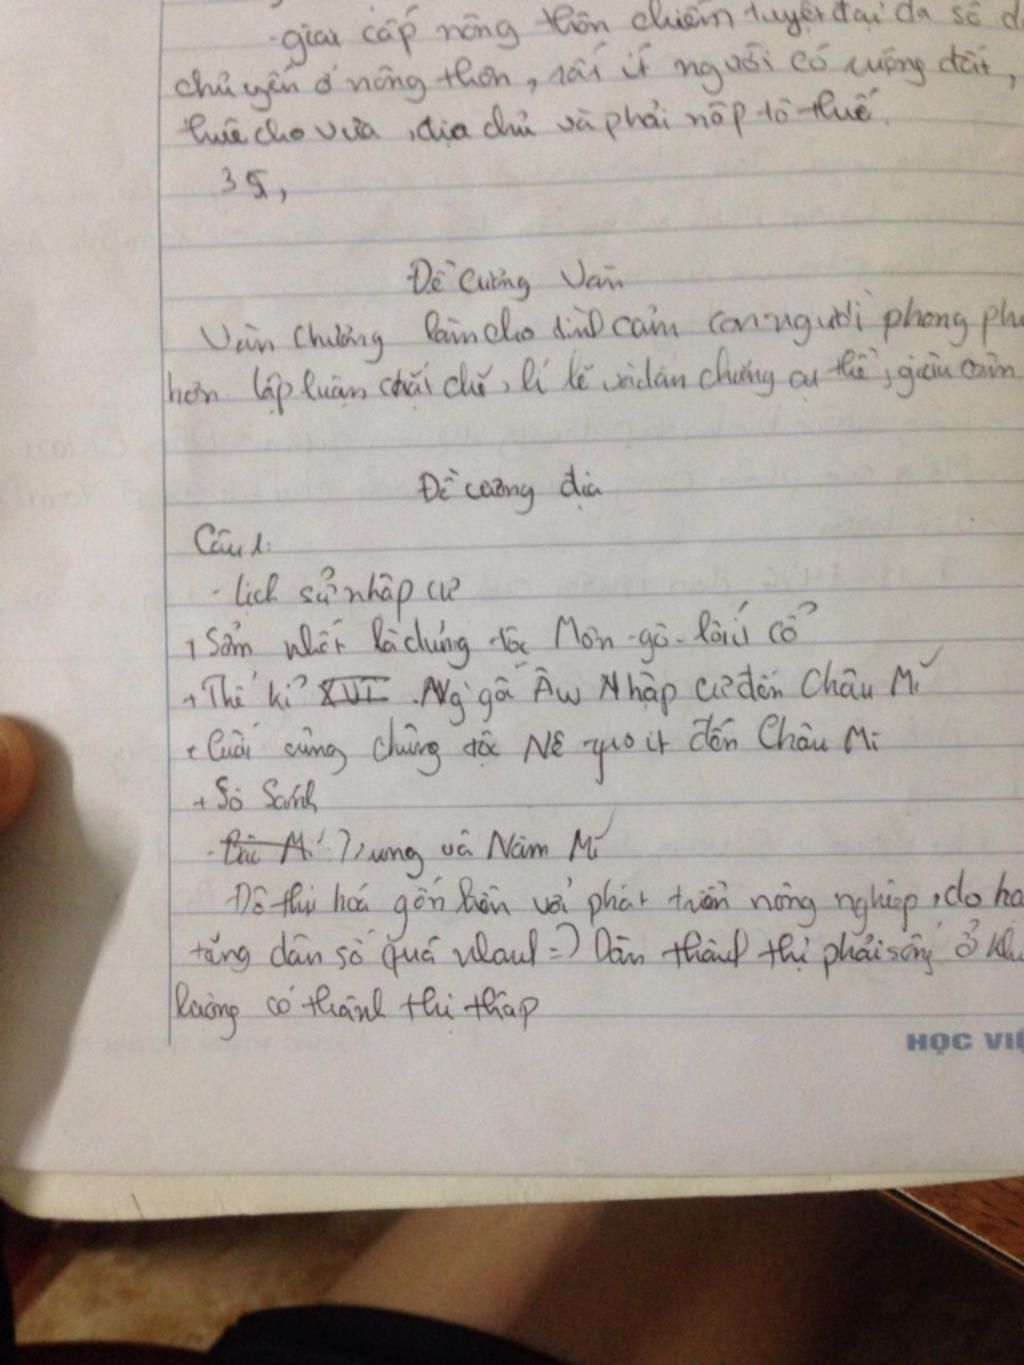 -giai cấp nông thôn chiếm tuyệt đại đa số d
chủ yếu ở nông thôn, rất ít người có ruộng đất,
thuê cho vua, địa chủ và phải nộp tô thuế.
35,
Đề cương Văn
Văn chương làm cho tình cảm con người phong phú
hơn lập luận chặt chẽ, lí lẽ và dẫn chứng cụ thể, giàu cảm
Đề cương địa
Câu 1:
- Lịch sử nhập cư
+ Sớm nhất là chủng tộc Môn-gô-lôit cổ
+ Thế kỉ XVI. Ng gố Âu Nhập cư đến Châu Mĩ
+ Cuối cùng chủng tộc Nê grô it đến Châu Mĩ
+ So Sánh
- Bắc Mĩ Trung và Nam Mĩ
Đô thị hoá gắn liền với phát triển nông nghiệp, do
tăng dân số quá => Dân thành thị phải sống ở
lương có thành thị thấp
HỌC VI